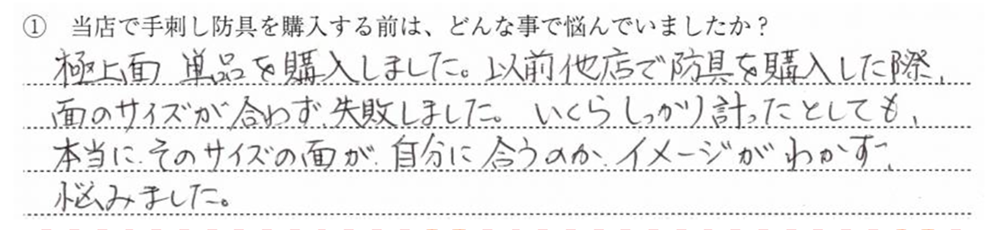 ① 当店で手刺し防具を購入する前は、どんな事で悩んでいましたか？
極上面 単品を購入しました。以前他店で防具を購入した際、
面のサイズが合わず、失敗しました。いくらしっかり計ったとしても、
本当に、そのサイズの面が、自分に合うのか、イメージがわかず、
悩みました。